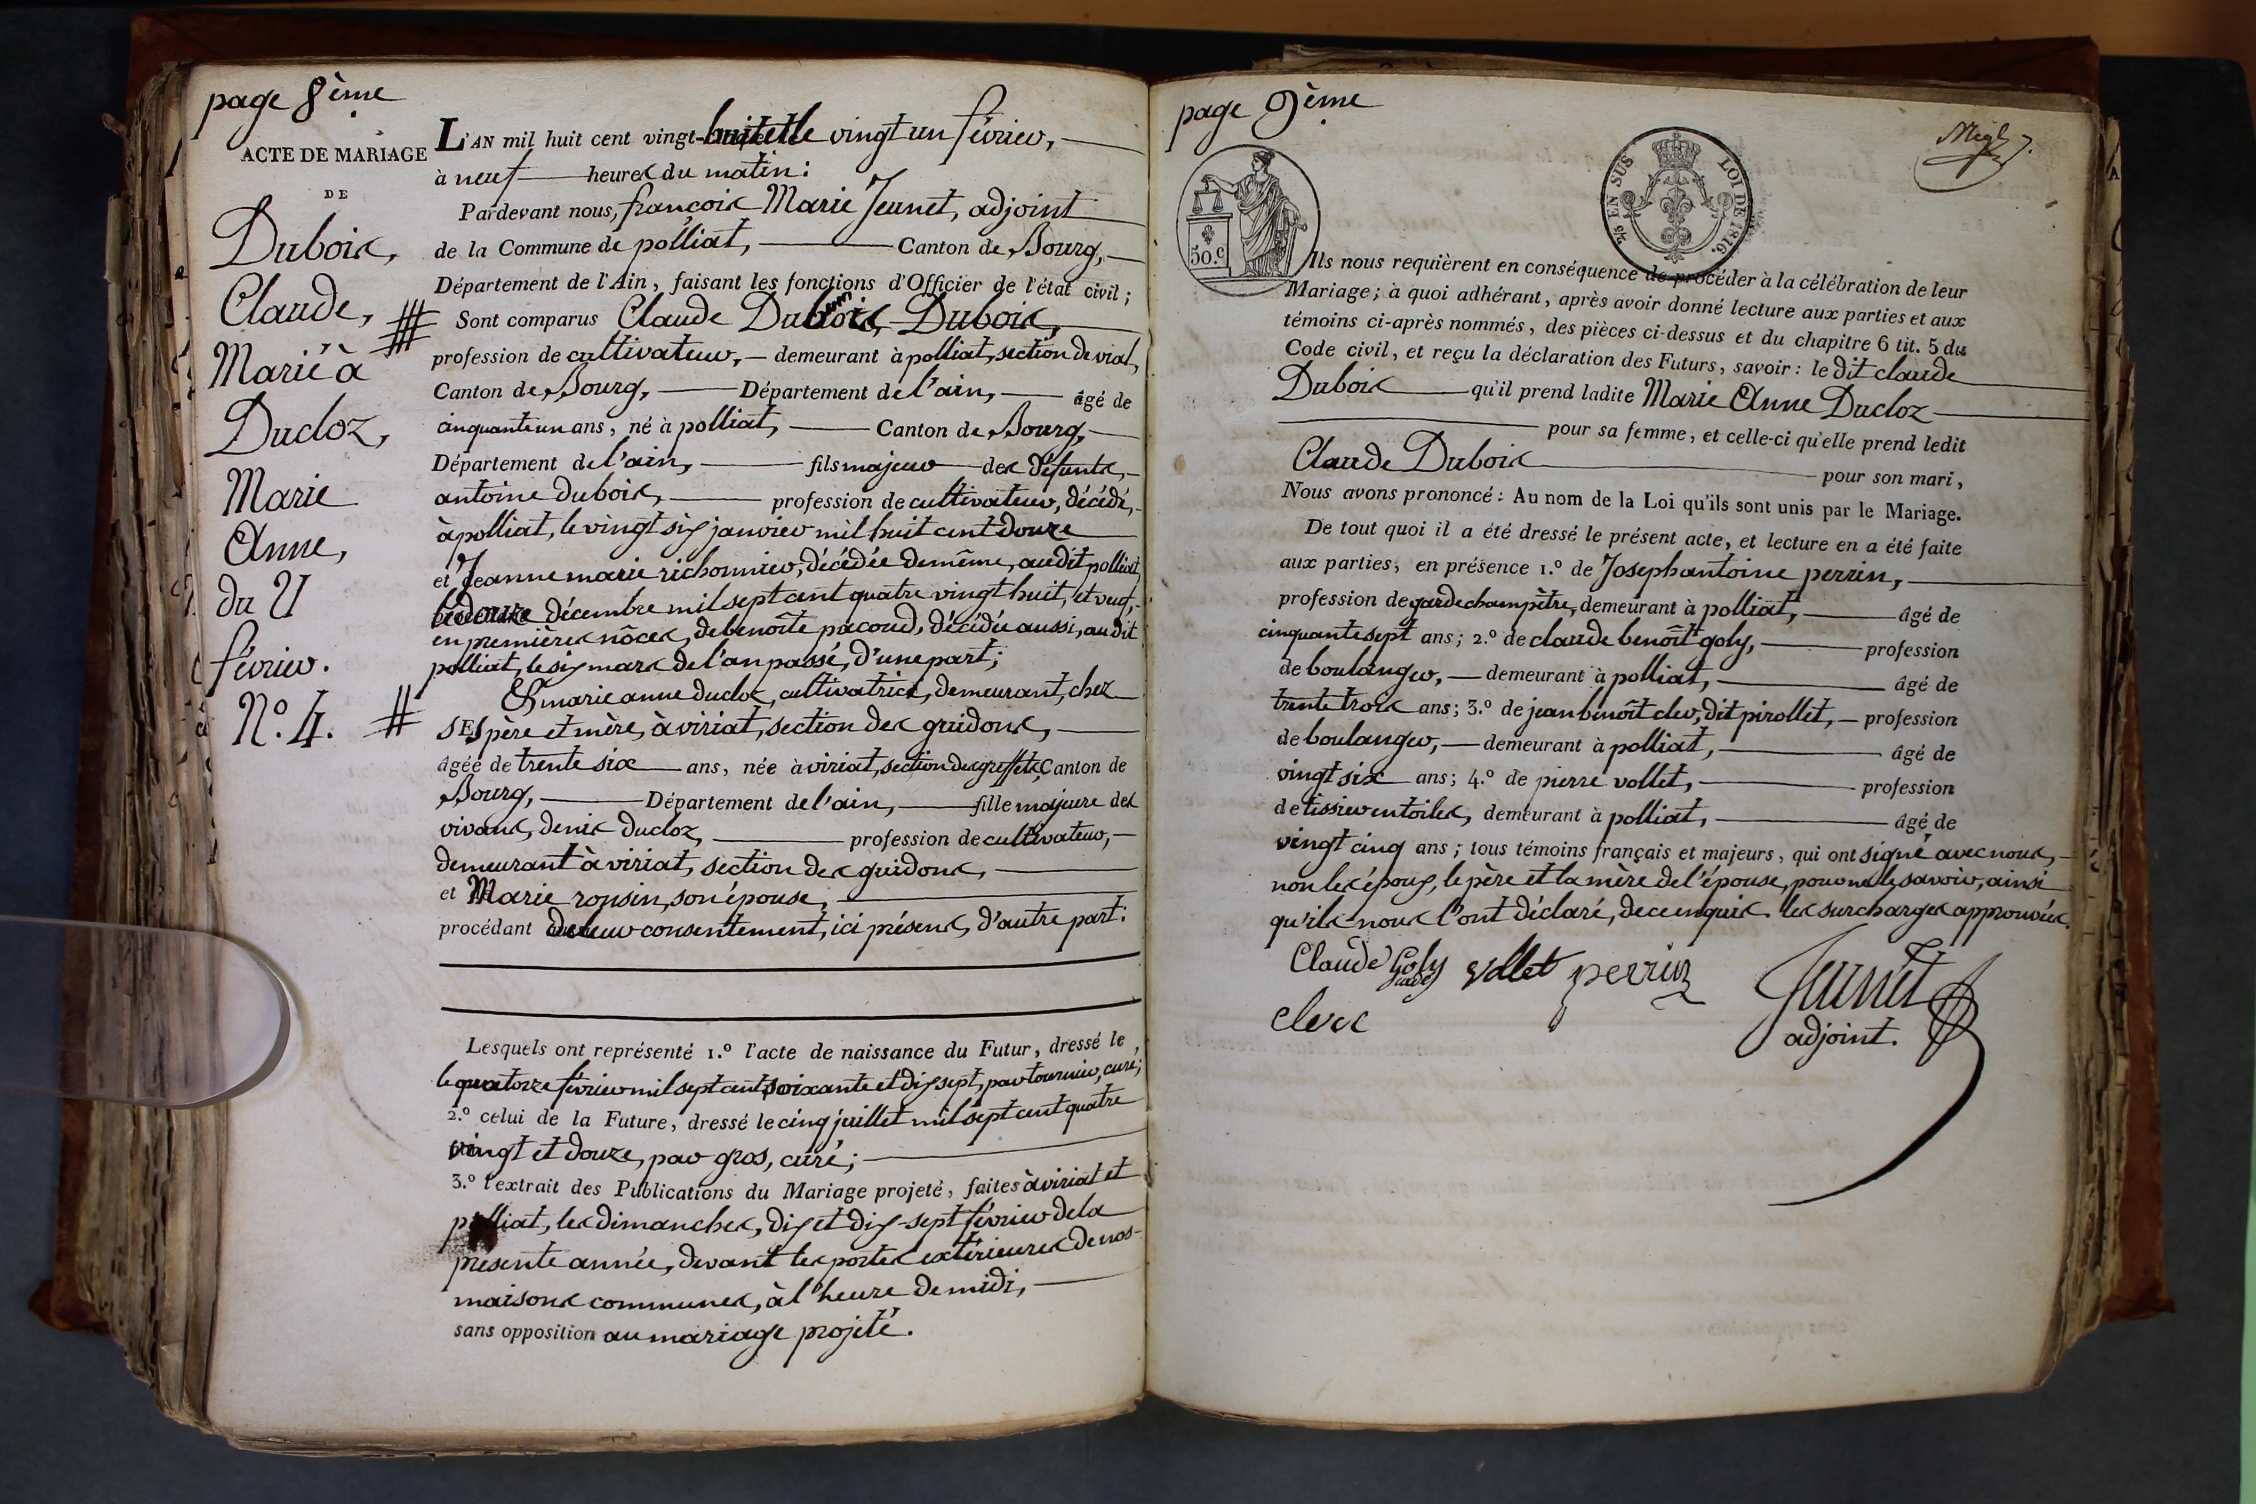 page 8ème
ACTE DE MARIAGE
DE
Dubois,
Claude,
Marié à
Ducloz,
Marie
Anne,
du 21
février.
N.º 4.
L'AN mil huit cent vingt-huit et le vingt un février,
à neuf heures du matin:
Pardevant nous, françois Marie Jeunet, adjoint
de la Commune de polliat, Canton de Bourg,
Département de l'Ain, faisant les fonctions d'Officier de l'état civil;
Sont comparus Claude Dubois, Dubois,
profession de cultivateur, demeurant à polliat, section de vial,
Canton de Bourg, Département de l'ain, âgé de
cinquante un ans, né à polliat, Canton de Bourg,
Département de l'ain, fils majeur des défunts,
antoine dubois, profession de cultivateur, décédé,
à polliat, le vingt six janvier mil huit cent douze
et Jeanne marie richonnier, décédée de même, audit polliat,
le douze décembre mil sept cent quatre vingt huit, et veuf,
en premières nôces, de benoîte pacoud, décédée aussi, au dit
polliat, le six mars de l'an passé, d'une part;
Et marie anne ducloz, cultivatrice, demeurant, chez
SES père et mère, à viriat, section des guidons,
âgée de trente six ans, née à viriat, section des greffets, Canton de
Bourg, Département de l'ain, fille majeure des
vivans, denis ducloz, profession de cultivateur,
demeurant à viriat, section des guidons,
et Marie ropsin, son épouse,
procédant de leur consentement, ici présens, d'autre part.
Lesquels ont représenté 1.º l'acte de naissance du Futur, dressé le,
le quatorze février mil sept cent soixante et dix sept, par tournier, curé;
2.º celui de la Future, dressé le cinq juillet mil sept cent quatre
vingt et douze, par gros, curé;
3.º l'extrait des Publications du Mariage projeté, faites à viriat et
polliat, les dimanches, dix et dix-sept février de la
présente année, devant les portes extérieures de nos
maisons communes, à l'heure de midi,
sans opposition au mariage projeté.
page 9ème
50.c
EN SUS
LOI DE 1816.
Ils nous requièrent en conséquence de procéder à la célébration de leur
Mariage; à quoi adhérant, après avoir donné lecture aux parties et aux
témoins ci-après nommés, des pièces ci-dessus et du chapitre 6 tit. 5 du
Code civil, et reçu la déclaration des Futurs, savoir: le dit claude
Dubois qu'il prend ladite Marie Anne Ducloz
pour sa femme, et celle-ci qu'elle prend ledit
Claude Dubois pour son mari,
Nous avons prononcé: Au nom de la Loi qu'ils sont unis par le Mariage.
De tout quoi il a été dressé le présent acte, et lecture en a été faite
aux parties, en présence 1.º de Joseph antoine perrin,
profession de garde champêtre, demeurant à polliat, âgé de
cinquante sept ans; 2.º de claude benoît goly, profession
de boulanger, demeurant à polliat, âgé de
trente trois ans; 3.º de jean benoît clerc, dit pirollet, profession
de boulanger, demeurant à polliat, âgé de
vingt six ans; 4.º de pierre vollet, profession
de tissier en toiles, demeurant à polliat, âgé de
vingt cinq ans; tous témoins français et majeurs, qui ont signé avec nous,
non les époux, le père et la mère de l'épouse, pour ne le savoir, ainsi
qu'ils nous l'ont déclaré, de ce enquis. les surcharges approuvées.
Claude Goly vollet perrin Jeunet
clerc
adjoint.